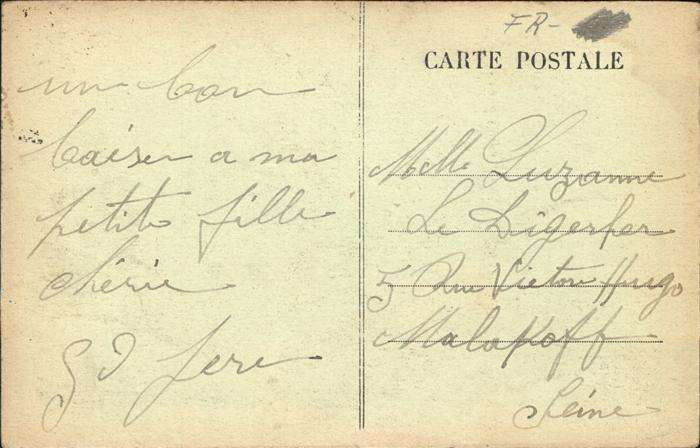 un bon
baiser a ma
petite fille
chérie
Gd Pere
FR-
CARTE POSTALE
Melle Suzanne
Le
5 Rue Victor Hugo
Malakoff
Seine